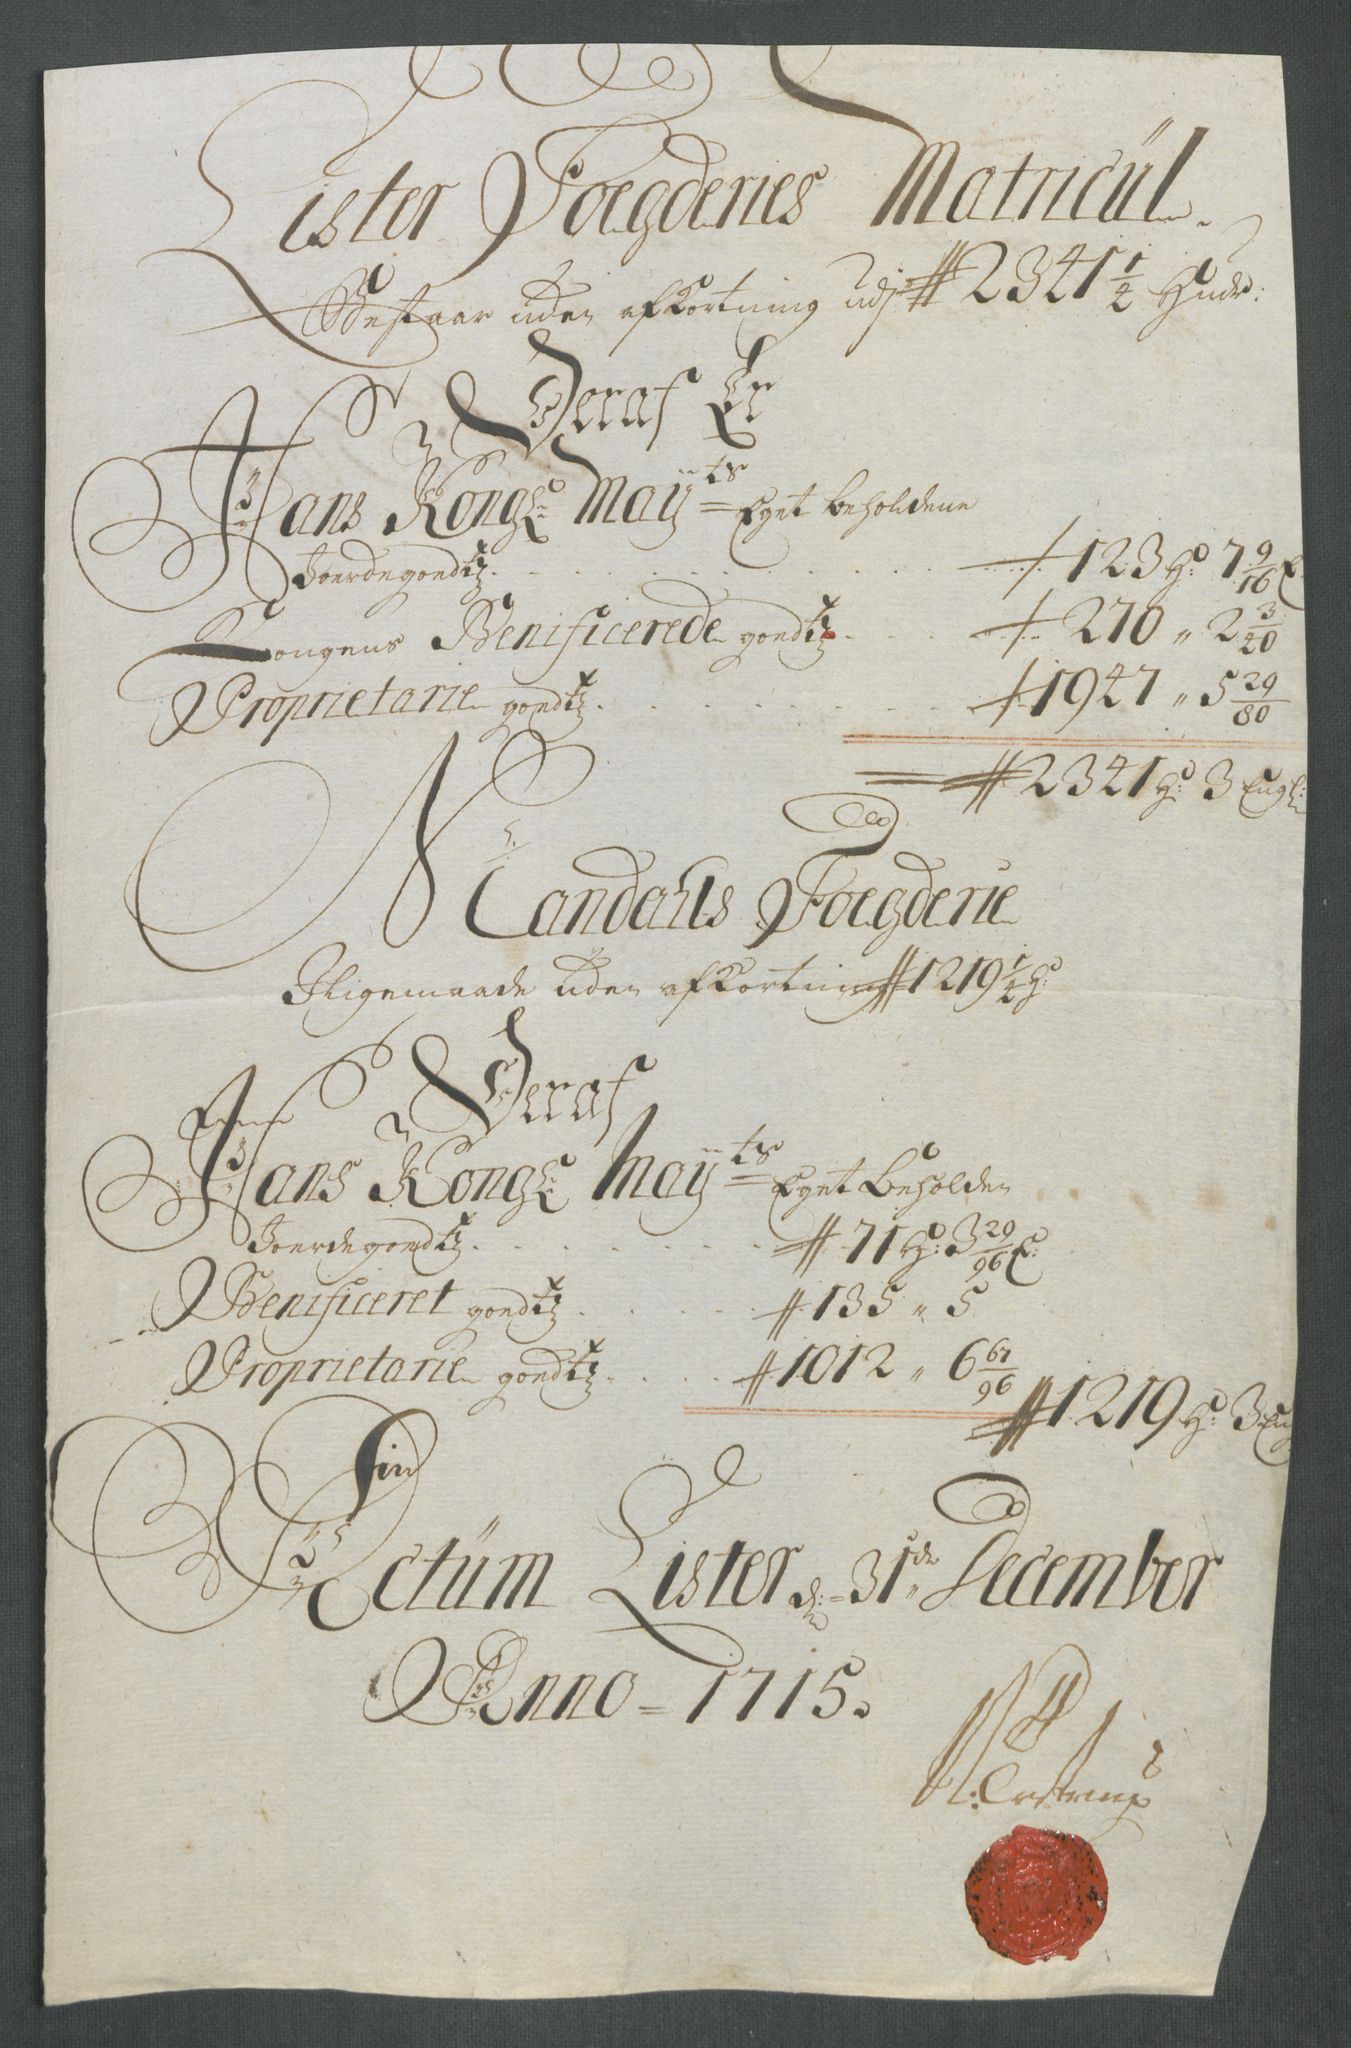 Lister Foegderies Matricül
Bestaar üden afkortning udj # 2341 1/4 Hudr:
Deraf Er
Hans Kongl: Mayts Eget beholdene
Joerdegoedtz . . . . 123 Hd: 7 9/16 E
Kongens Benificerede goedtz . . . 270 " 2 3/20
Proprietarie goedtz . . . . 1947 " 5 29/80
# 2341 Hd: 3 Engl:
Mandahls Foegderie
Iligemaade üden afkortning # 1219 1/2 Hd:
Deraf
Hans Kongl: Mayts Eget beholden
Joerdegoedtz . . . . # 71 Hd: 3 29/96 E:
Benificeret goedtz . . . . # 135 " 5
Proprietarie goedtz . . . . # 1012 " 6 67/96
# 1219 Hd: 3 Eng
Actüm Lister d: 31de December
Anno = 1715.